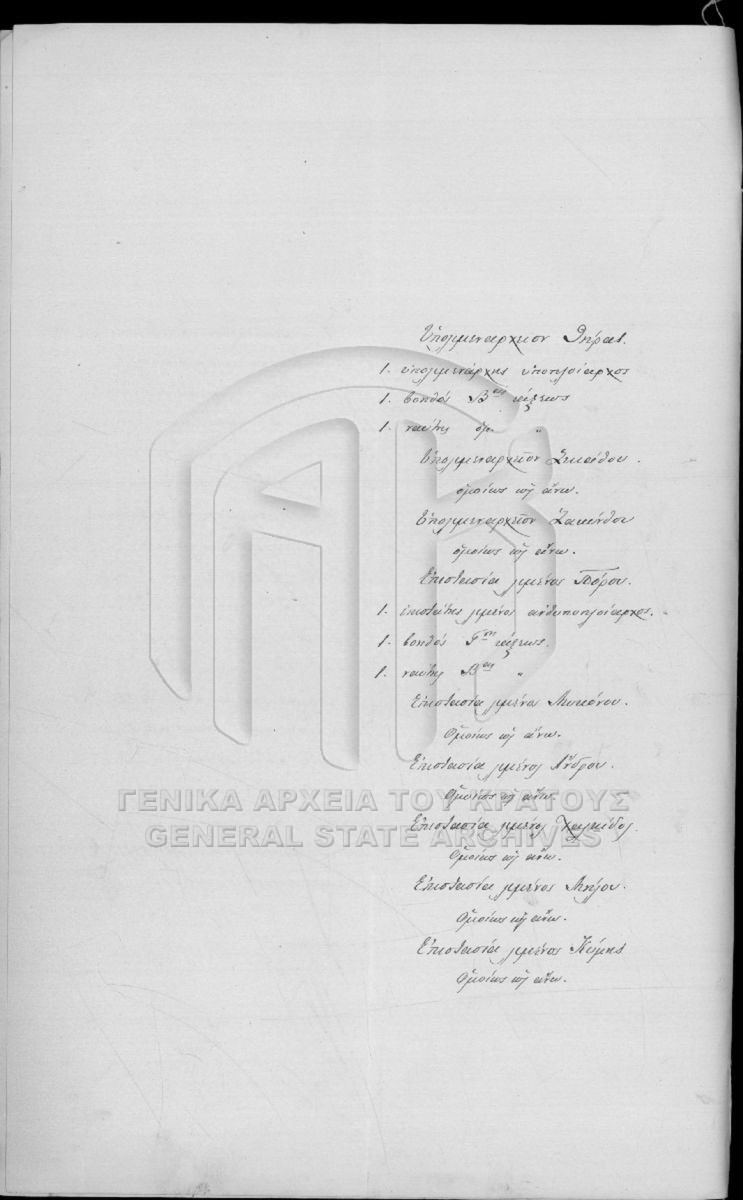 Ὑπολιμεναρχεῖον Θήρας.
1. ὑπολιμενάρχης ὑποπλοίαρχος
1. βοηθός Βας τάξεως
1. ναύτης ὁμ. "
Ὑπολιμεναρχεῖον Σκιάθου.
ὁμοίως ὡς ἄνω.
Ὑπολιμεναρχεῖον Ζακύνθου
ὁμοίως ὡς ἄνω.
Ἐπιστασία λιμένος Πόρου.
1. ἐπιστάτης λιμένος ἀνθυποπλοίαρχος.
1. βοηθός Γης τάξεως.
1. ναύτης Βας "
Ἐπιστασία λιμένος Μυκόνου.
Ὁμοίως ὡς ἄνω.
Ἐπιστασία λιμένος Ἄνδρου.
Ὁμοίως ὡς ἄνω
Ἐπιστασία λιμένος Χαλκίδος.
Ὁμοίως ὡς ἄνω.
Ἐπιστασία λιμένος Μήλου.
Ὁμοίως ὡς ἄνω.
Ἐπιστασία λιμένος Κύμης
Ὁμοίως ὡς ἄνω.
ΓΕΝΙΚΑ ΑΡΧΕΙΑ ΤΟΥ ΚΡΑΤΟΥΣ
GENERAL STATE ARCHIVES